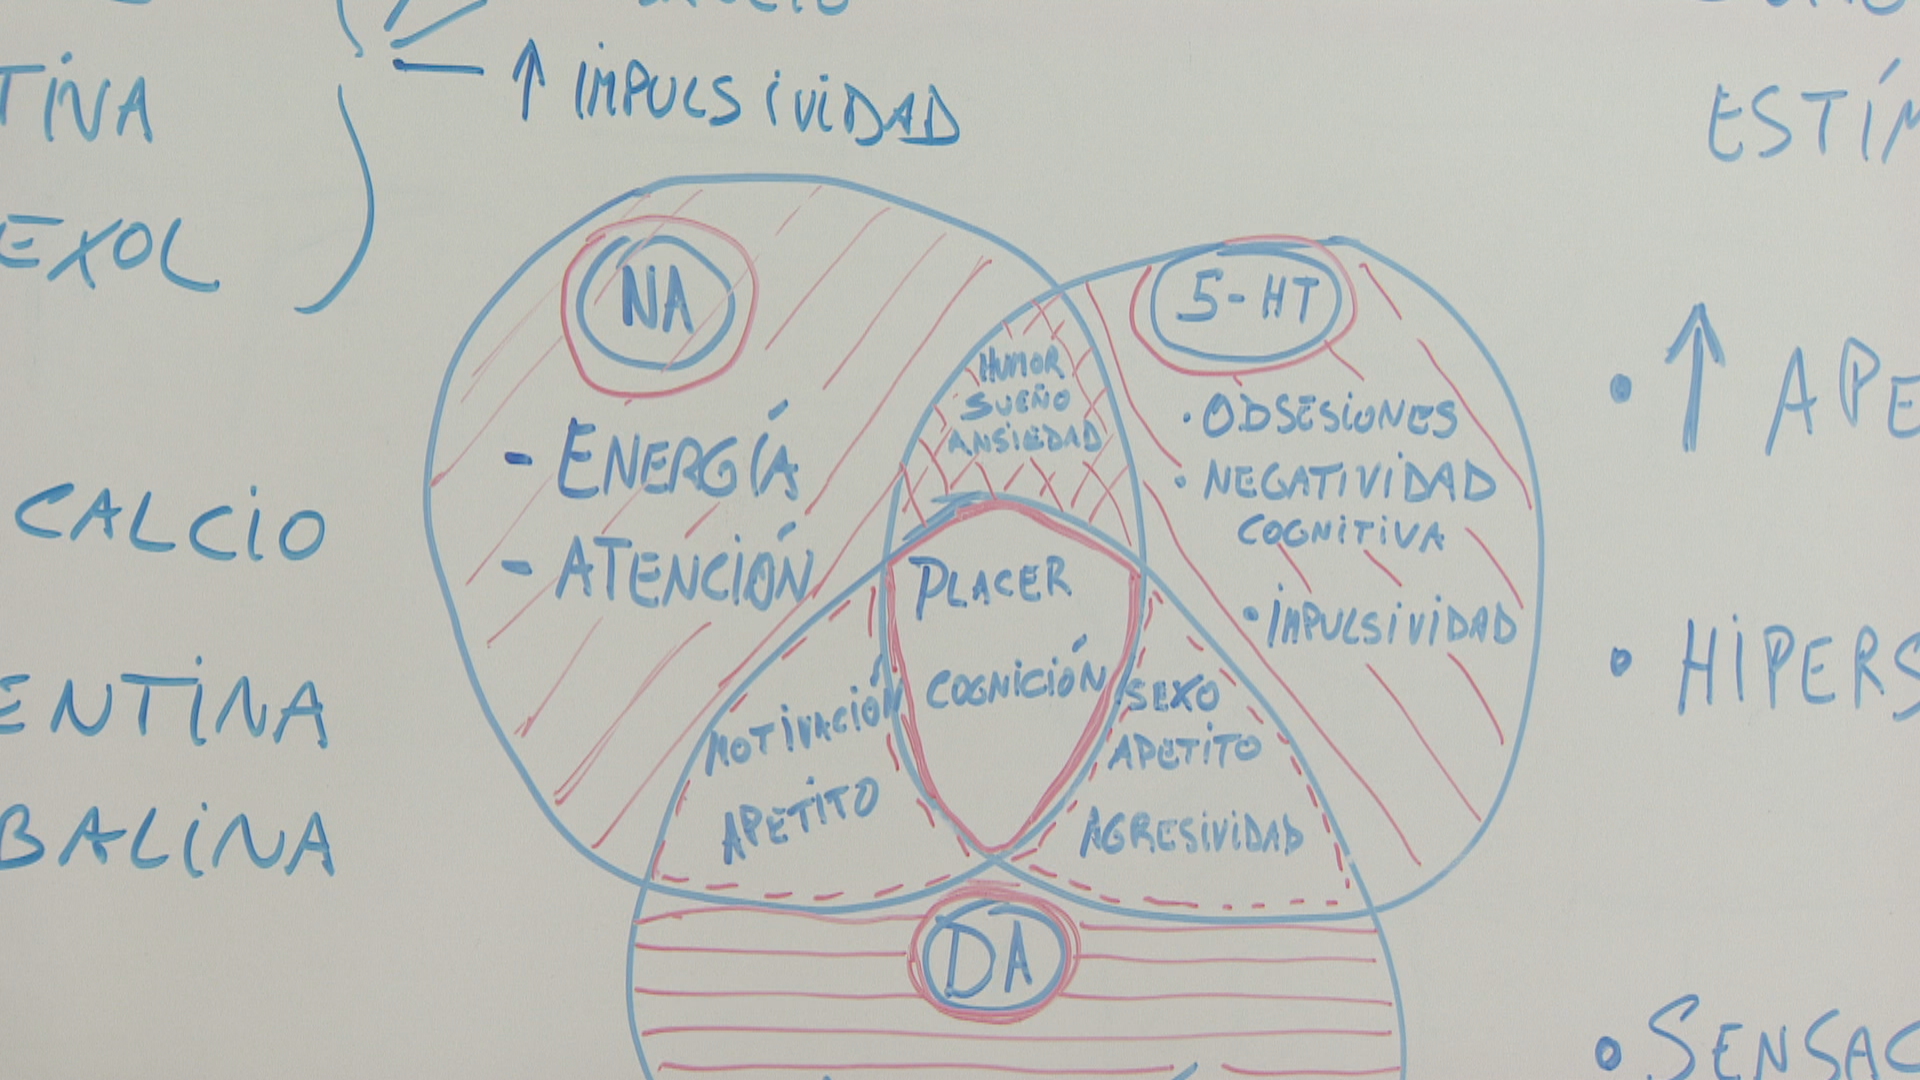 ↑ IMPULSIVIDAD
TINA
EXOL
CALCIO
ENTINA
BALINA
NA
- ENERGÍA
- ATENCIÓN
HUMOR
SUEÑO
ANSIEDAD
5-HT
• ODSESIONES
• NEGATIVIDAD
COGNITIVA
• IMPULSIVIDAD
PLACER
COGNICIÓN
MOTIVACIÓN
APETITO
SEXO
APETITO
AGRESIVIDAD
DA
ESTÍM
• ↑ APE
• HIPERS
• SENSAC